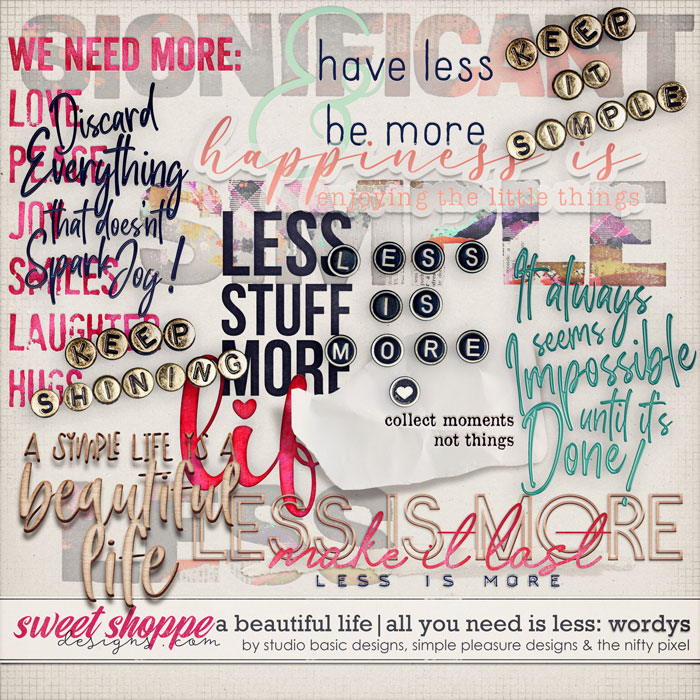 SIGNIFICANT
&
WE NEED MORE:
LOVE
PEACE
JOY
SMILES
LAUGHTER
HUGS
Discard
Everything
that doesn't
Spark Joy!
have less
be more
KEEP
IT
SIMPLE
happiness is
enjoying the little things
SIMPLE
LESS
STUFF
MORE
life
LESS
IS
MORE
It always
seems
Impossible
until it's
Done!
KEEP
SHINING
collect moments
not things
A SIMPLE LIFE IS A
beautiful
life
LESS IS MORE
make it last
LESS IS MORE
sweet shoppe
designs.com
a beautiful life|all you need is less: wordys
by studio basic designs, simple pleasure designs & the nifty pixel